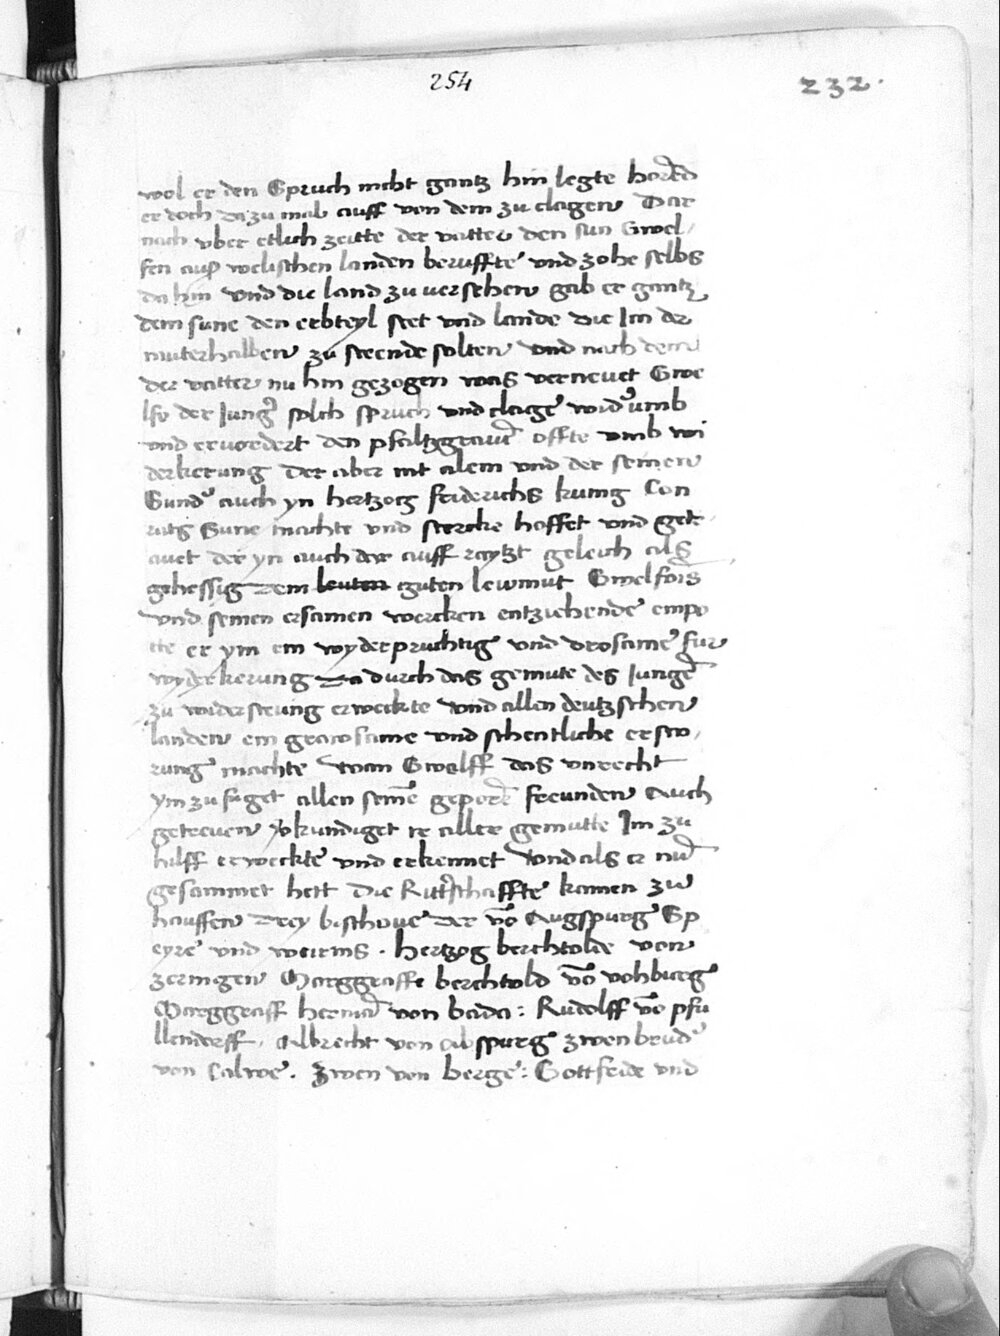 254
232.
wol er den Spruch nicht gantz hin legte
er doch da zu mal auff von dem zu clagen Dar
nach vber etlich zeitte der vatter den sun Gwel/
fen auß welischen landen beruffte vnd zohe selbs
da hin vnd die land zu uersehen gab er gantz
dem sune den erbteyl stet vnd lande die Im der
muterhalben zu steende solten vnd nach dem
der vatter nu hin gezogen was verneuet Gwe
lfo der Jung solch spruch vnd clage widerumb
vnd eruordert den pfaltzgraue offte vmb wi
derkerung Der aber mit alem vnd der seinen
Sunder auch yn hertzog friderichs kunig Con
rats Sune machte vnd stercke hoffet vnd getr
auet der yn auch dar auff raytzt geleich als
gehessig dem guten lewmut Gwelfons
vnd seinen ersamen wercken entziehende enpo
tte er ym ein wyderpruchtig vnd drosame fur
wyderkerung Da durch das gemute des Junge
zu widersteung erweckte vnd allen deutzschen
landen ein grawsame vnd schentliche ersto/
rung machte Wan Gwelff das vnrecht
ym zu fuget allen seine gepore freunden Auch
getreuen verkundiget re aller gemutte Im zu
hilff erweckte vnd erkennet Vnd als er nu
gesammet hett Die Ritterschaffte kamen zu
hauffen Drey bischoue Der von Augspurg Sp
eyre vnd worms . hertzog berchtolde von
zeringen Marggraffe berchtold von vohburg
Marggraff herman von bada : Rudolff von pfu
llendorff . Albrecht von abspurg zwen bruder
von Calwe . Zwen von berge : Gottfride vnd